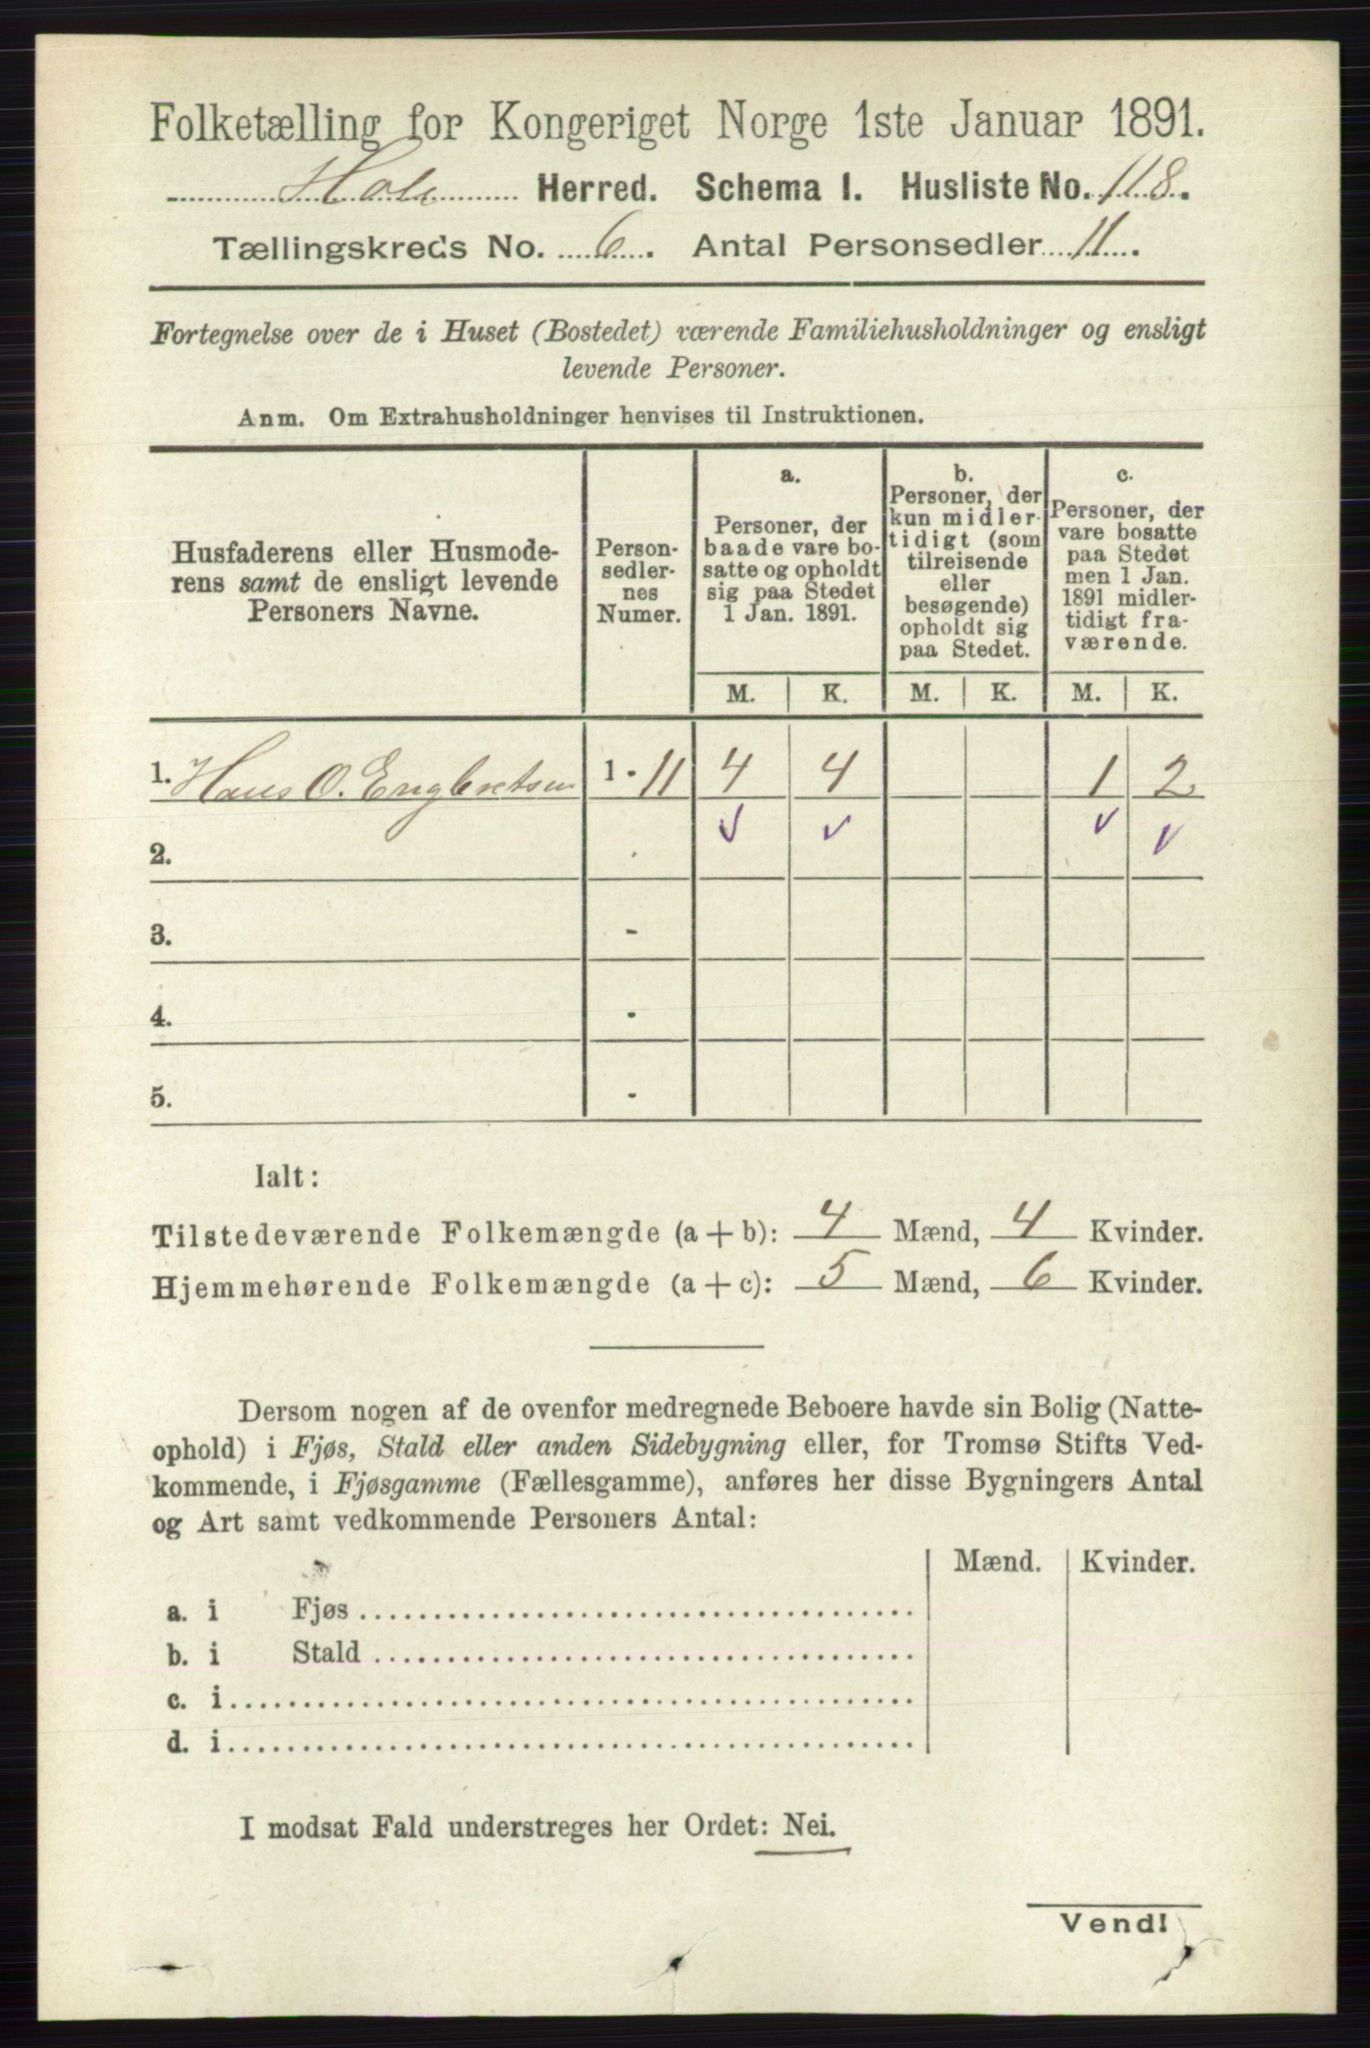 Folketælling for Kongeriget Norge 1ste Januar 1891.
Hole Herred. Schema I. Husliste No. 118.
Tællingskreds No. 6. Antal Personsedler 11.
Fortegnelse over de i Huset (Bostedet) værende Familiehusholdninger og ensligt
levende Personer.
Anm. Om Extrahusholdninger henvises til Instruktionen.
Husfaderens eller Husmode-
rens samt de ensligt levende
Personers Navne.
Person-
sedler-
nes
Numer.
a.
Personer, der
baade vare bo-
satte og opholdt
sig paa Stedet
1 Jan. 1891.
b.
Personer, der
kun midler-
tidigt (som
tilreisende
eller
besøgende)
opholdt sig
paa Stedet.
c.
Personer, der
vare bosatte
paa Stedet
men 1 Jan.
1891 midler-
tidigt fra-
værende.
M. K. M. K. M. K.
1. Hans O. Engbretsen 1 - 11 4 4 1 2
2.
3. -
4. -
5. -
Ialt:
Tilstedeværende Folkemængde (a + b): 4 Mænd, 4 Kvinder.
Hjemmehørende Folkemængde (a + c): 5 Mænd, 6 Kvinder.
Dersom nogen af de ovenfor medregnede Beboere havde sin Bolig (Natte-
ophold) i Fjøs, Stald eller anden Sidebygning eller, for Tromsø Stifts Ved-
kommende, i Fjøsgamme (Fællesgamme), anføres her disse Bygningers Antal
og Art samt vedkommende Personers Antal:
Mænd. Kvinder.
a. i Fjøs
b. i Stald
c. i
d. i
I modsat Fald understreges her Ordet: Nei.
Vend!